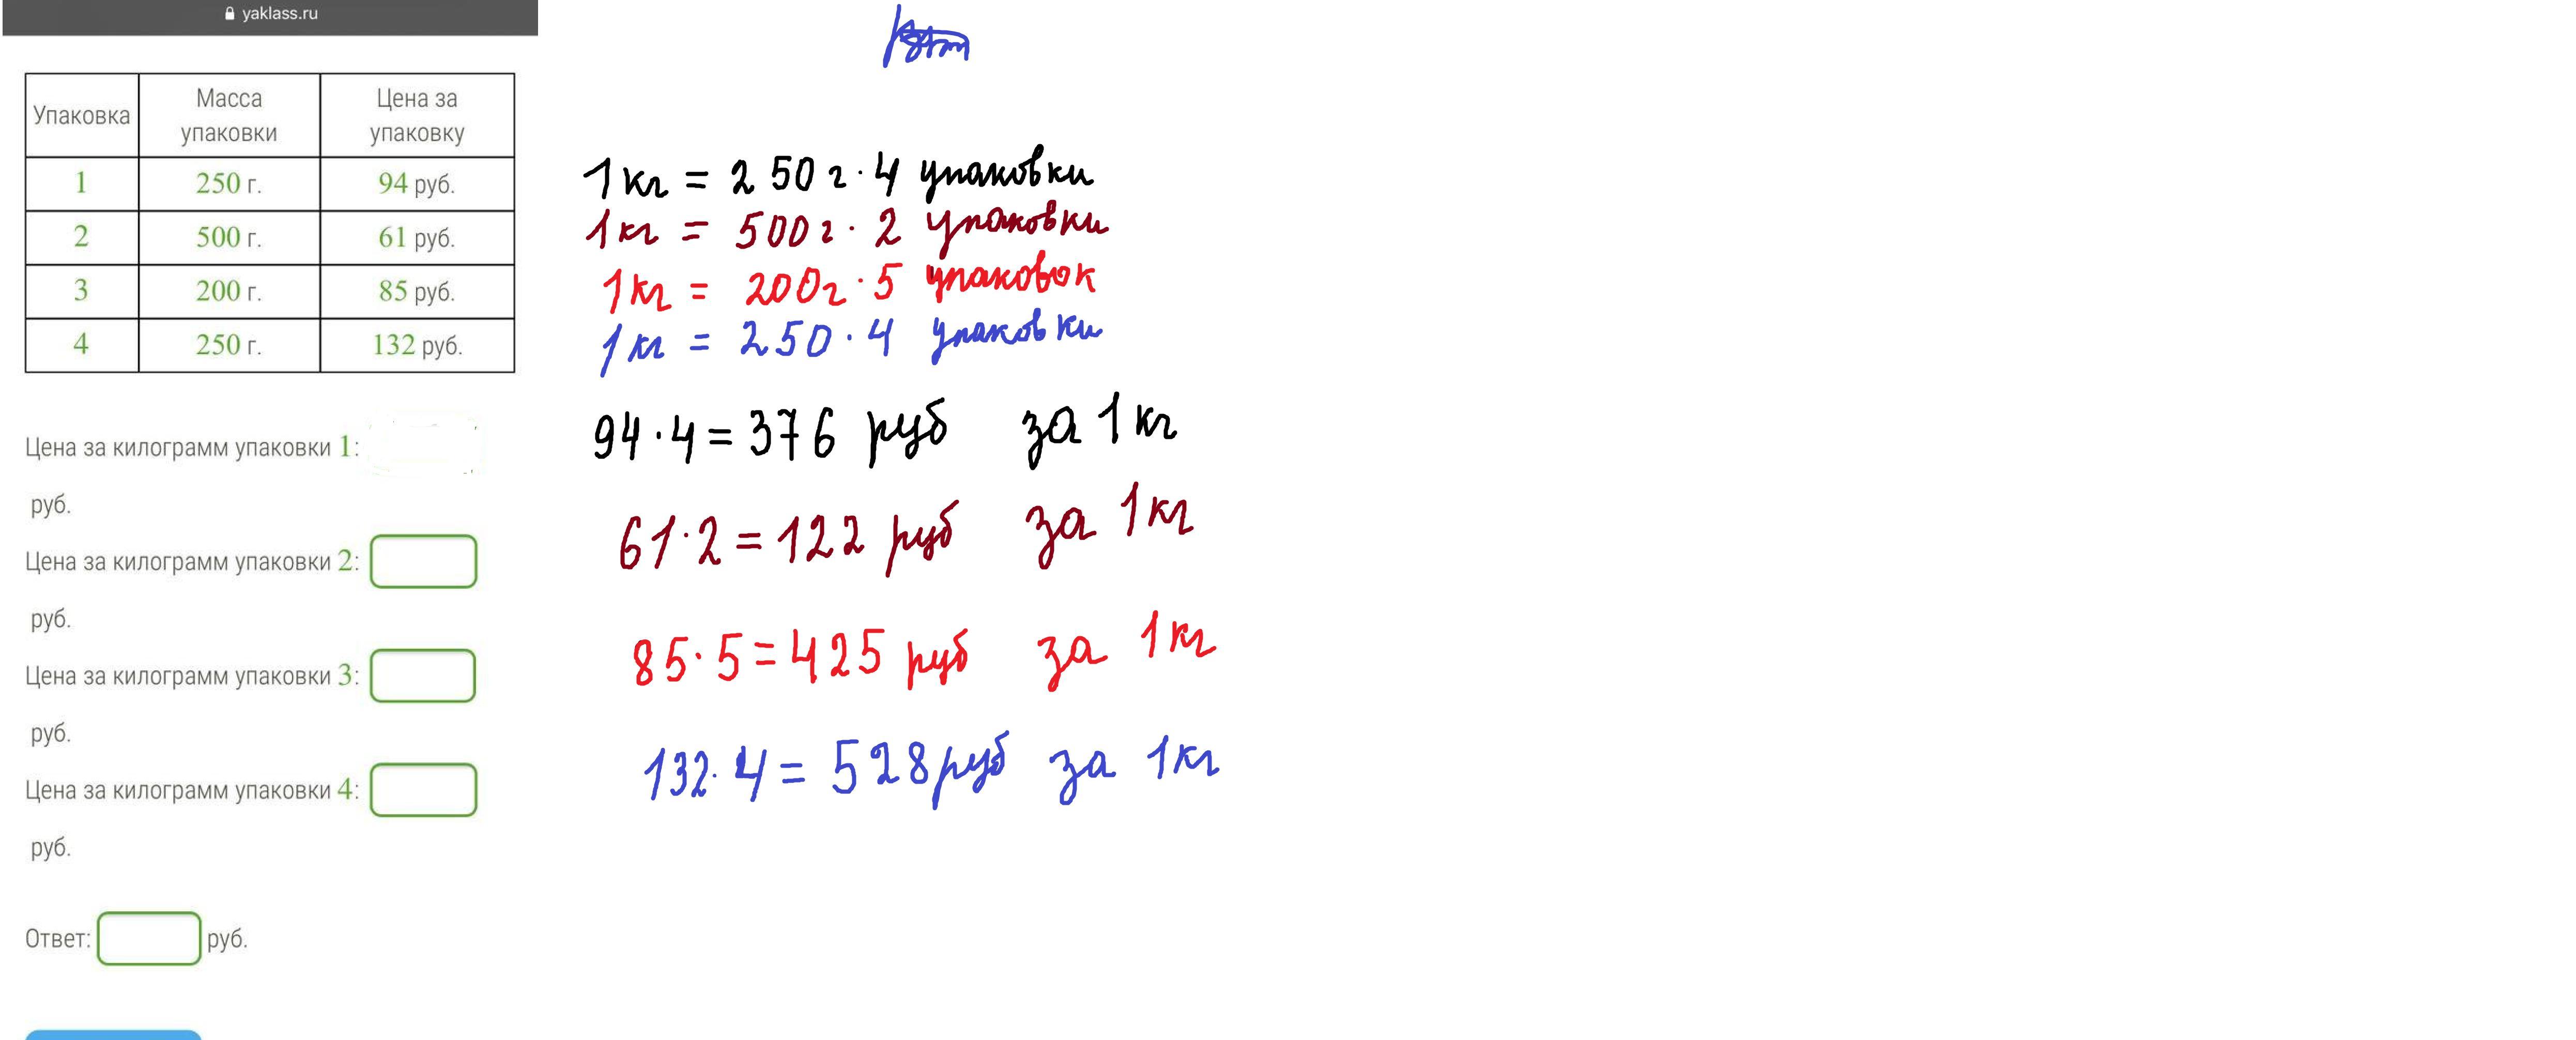 yaklass.ru
Упаковка Масса упаковки Цена за упаковку
1 250 г. 94 руб.
2 500 г. 61 руб.
3 200 г. 85 руб.
4 250 г. 132 руб.
Цена за килограмм упаковки 1:
руб.
Цена за килограмм упаковки 2:
руб.
Цена за килограмм упаковки 3:
руб.
Цена за килограмм упаковки 4:
руб.
Ответ: руб.
1 кг = 250 г · 4 упаковки
1 кг = 500 г · 2 упаковки
1 кг = 200 г · 5 упаковок
1 кг = 250 · 4 упаковки
94 · 4 = 376 руб за 1 кг
61 · 2 = 122 руб за 1 кг
85 · 5 = 425 руб за 1 кг
132 · 4 = 528 руб за 1 кг